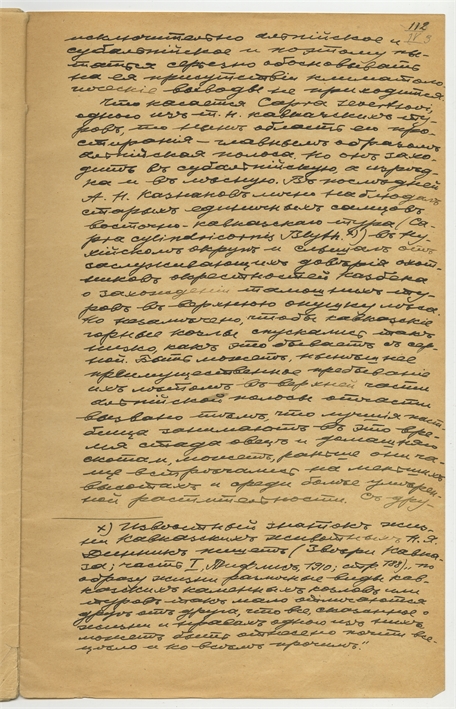 112
исключительно альпійское и
субальпійское и поэтому пы-
таться серьезно обосновывать
на ея присутствіи климатоло-
гическіе выводы не приходится.
Что касается Capra severtzovi,
одного изъ т. н. кавказскихъ ту-
ровъ, то нынѣ область его про-
стиранія – главнымъ образомъ
альпійская полоса, но онъ захо-
дитъ въ субальпійскую, а изрѣд-
ка и въ лѣсную. Въ послѣдней
А. Н. Казнаковъ лично наблюдалъ
старыхъ единичныхъ самцовъ
восточно-кавказскаго тура (Ca-
pra cylindricornis Blyth. х) въ Ну-
хинскомъ округѣ и слышалъ отъ
заслуживающихъ довѣрія охот-
никовъ окрестностей Казбека
о захожденіи тамошнихъ ту-
ровъ въ верхнюю опушку лѣса.
Но незамѣчено, чтобы кавказскіе
горные козлы спускались такъ
низко, какъ это бываетъ съ сер-
ной. Быть можетъ, нынѣшнее
преимущественное пребываніе
ихъ лѣтомъ въ верхней части
альпійской полосы отчасти
вызвано тѣмъ, что лучшія паст-
бища занимаютъ въ это вре-
мя стада овецъ и домашняго
скота и, можетъ, раньше они ча-
ще встрѣчались на меньшихъ
высотахъ и среди болѣе умѣрен-
ной растительности. Съ дру-
х) Извѣстный знатокъ жиз-
ни Кавказскихъ животныхъ Н. Я.
Динникъ пишетъ (Звѣри Кавка-
за; часть I, Тифлисъ, 1910; стр. 188), „по
образу жизни различные виды кав-
казскихъ каменныхъ козловъ или
туровъ такъ мало отличаются
другъ отъ друга, что все, сказанное о
жизни и нравахъ одного изъ нихъ
можетъ быть отнесено почти все-
цѣло и ко всѣмъ прочимъ."